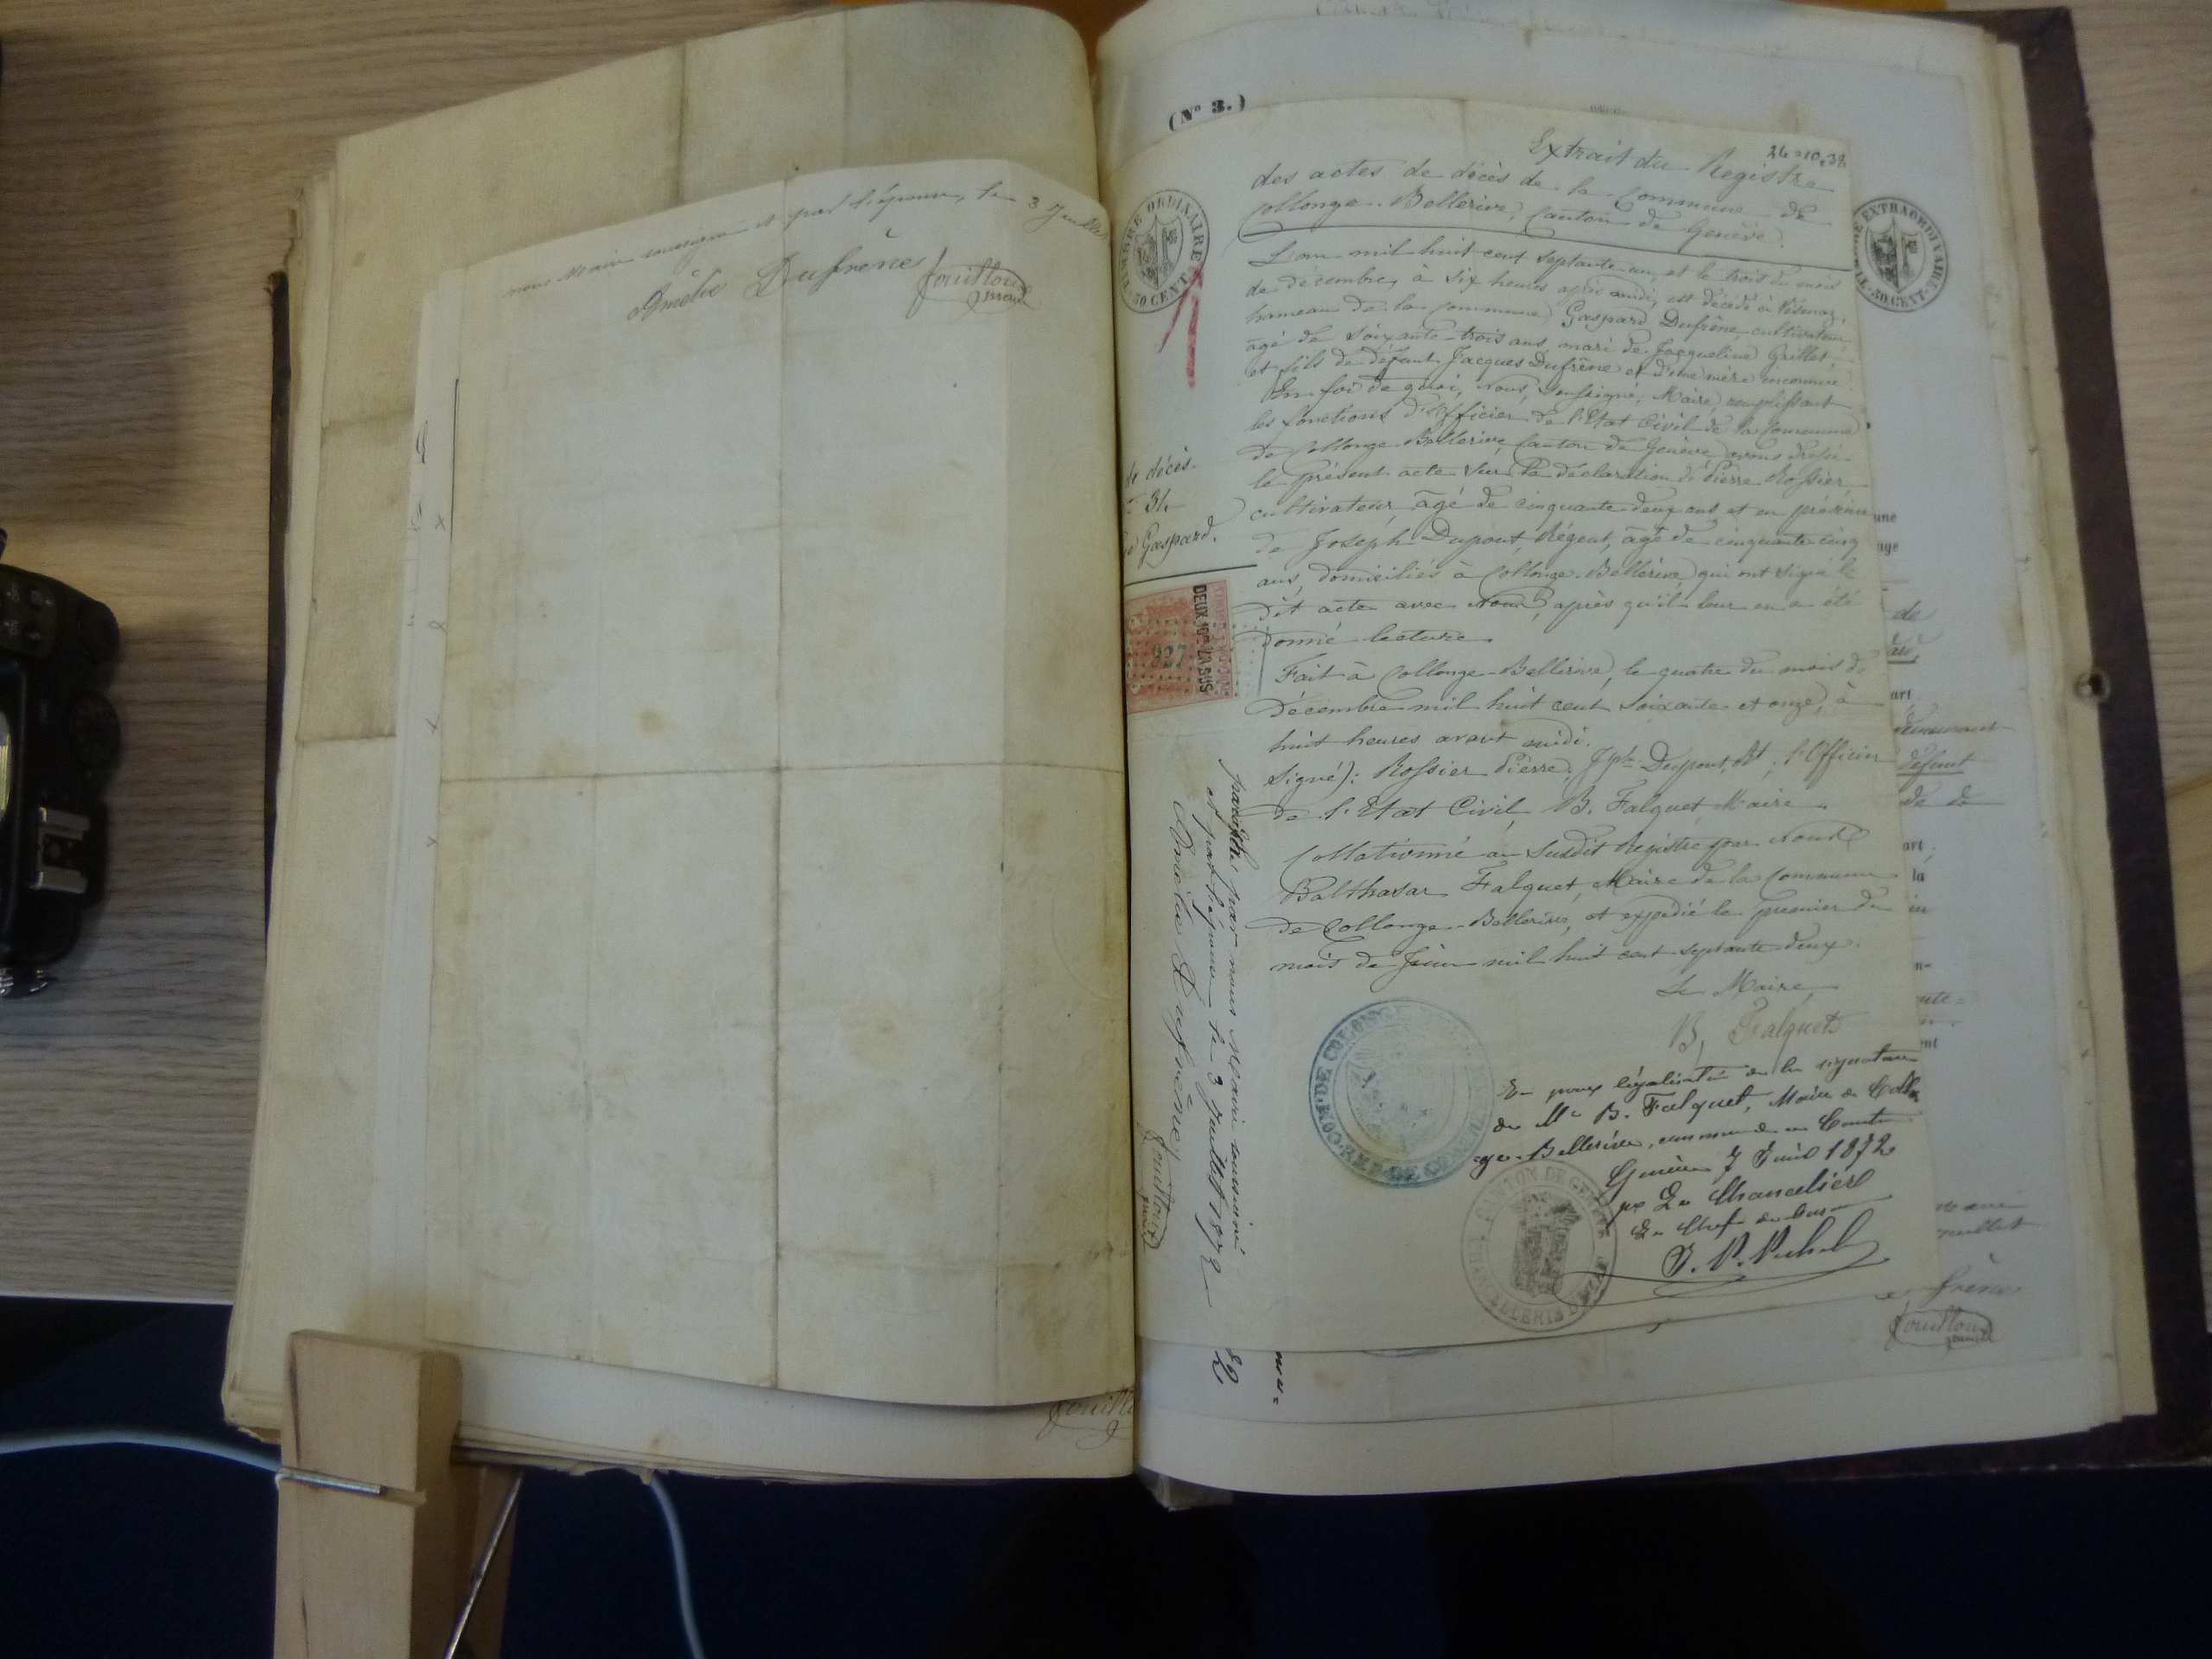 nous Maire soussigné et par l'épouse, le 3 Juillet
Amélie Dufrène Fouilloux
maire
(No 3.)
26.10.32
Extrait du Registre
des actes de décès de la Commune de
Collonge-Bellerive, Canton de Genève.
TIMBRE ORDINAIRE
50 CENT.
EXTRAORDINAIRE
50 CENT.
L'an mil huit cent septante-un, et le trois du mois
de décembre, à six heures après midi, est décédé à Vésenaz,
hameau de la Commune, Gaspard Dufrêne, cultivateur,
âgé de soixante-trois ans, mari de Jacqueline Grillet,
et fils de défunt Jacques Dufrêne et d'une mère inconnue.
En foi de quoi, Nous, Soussigné, Maire, remplissant
les fonctions d'Officier de l'Etat Civil de la Commune
de Collonge-Bellerive, Canton de Genève, avons dressé
le présent acte sur la déclaration de Pierre Rossier,
cultivateur, âgé de cinquante-deux ans et en présence
de Joseph Dupont, Régent, âgé de cinquante-cinq
ans, domiciliés à Collonge-Bellerive, qui ont signé le
dit acte avec Nous, après qu'il leur en a été
donné lecture.
Fait à Collonge-Bellerive, le quatre du mois de
décembre mil huit cent soixante et onze, à
huit heures avant midi.
Signé): Rossier Pierre; Jph Dupont, Rt; l'Officier
de l'Etat Civil, B. Falquet, Maire.
Collationné au susdit Registre par Nous
Balthasar Falquet, Maire de la Commune
de Collonge-Bellerive, et expédié le premier du
mois de Juin mil huit cent septante-deux.
Le Maire,
B. Falquet
de décès.
31.
Gaspard.
DEUX 10mes EN SUS
827
paraphé, par nous Maire soussigné
et par l'épouse le 3 Juillet 1872
Amélie Dufrène
Fouilloux
maire
légalisation de la signature
de Mr B. Falquet, Maire de Collon
ge-Bellerive, commune de ce Canton
Genève 7 Juin 1872
pr Le Chancelier
Le Chef de bureau
CANTON DE GENÈVE
CHANCELLERIE
REP. DE GENEVE
une
age
de
art
demeurant
défunt
de
art
la
in
frène
Fouilloux
maire